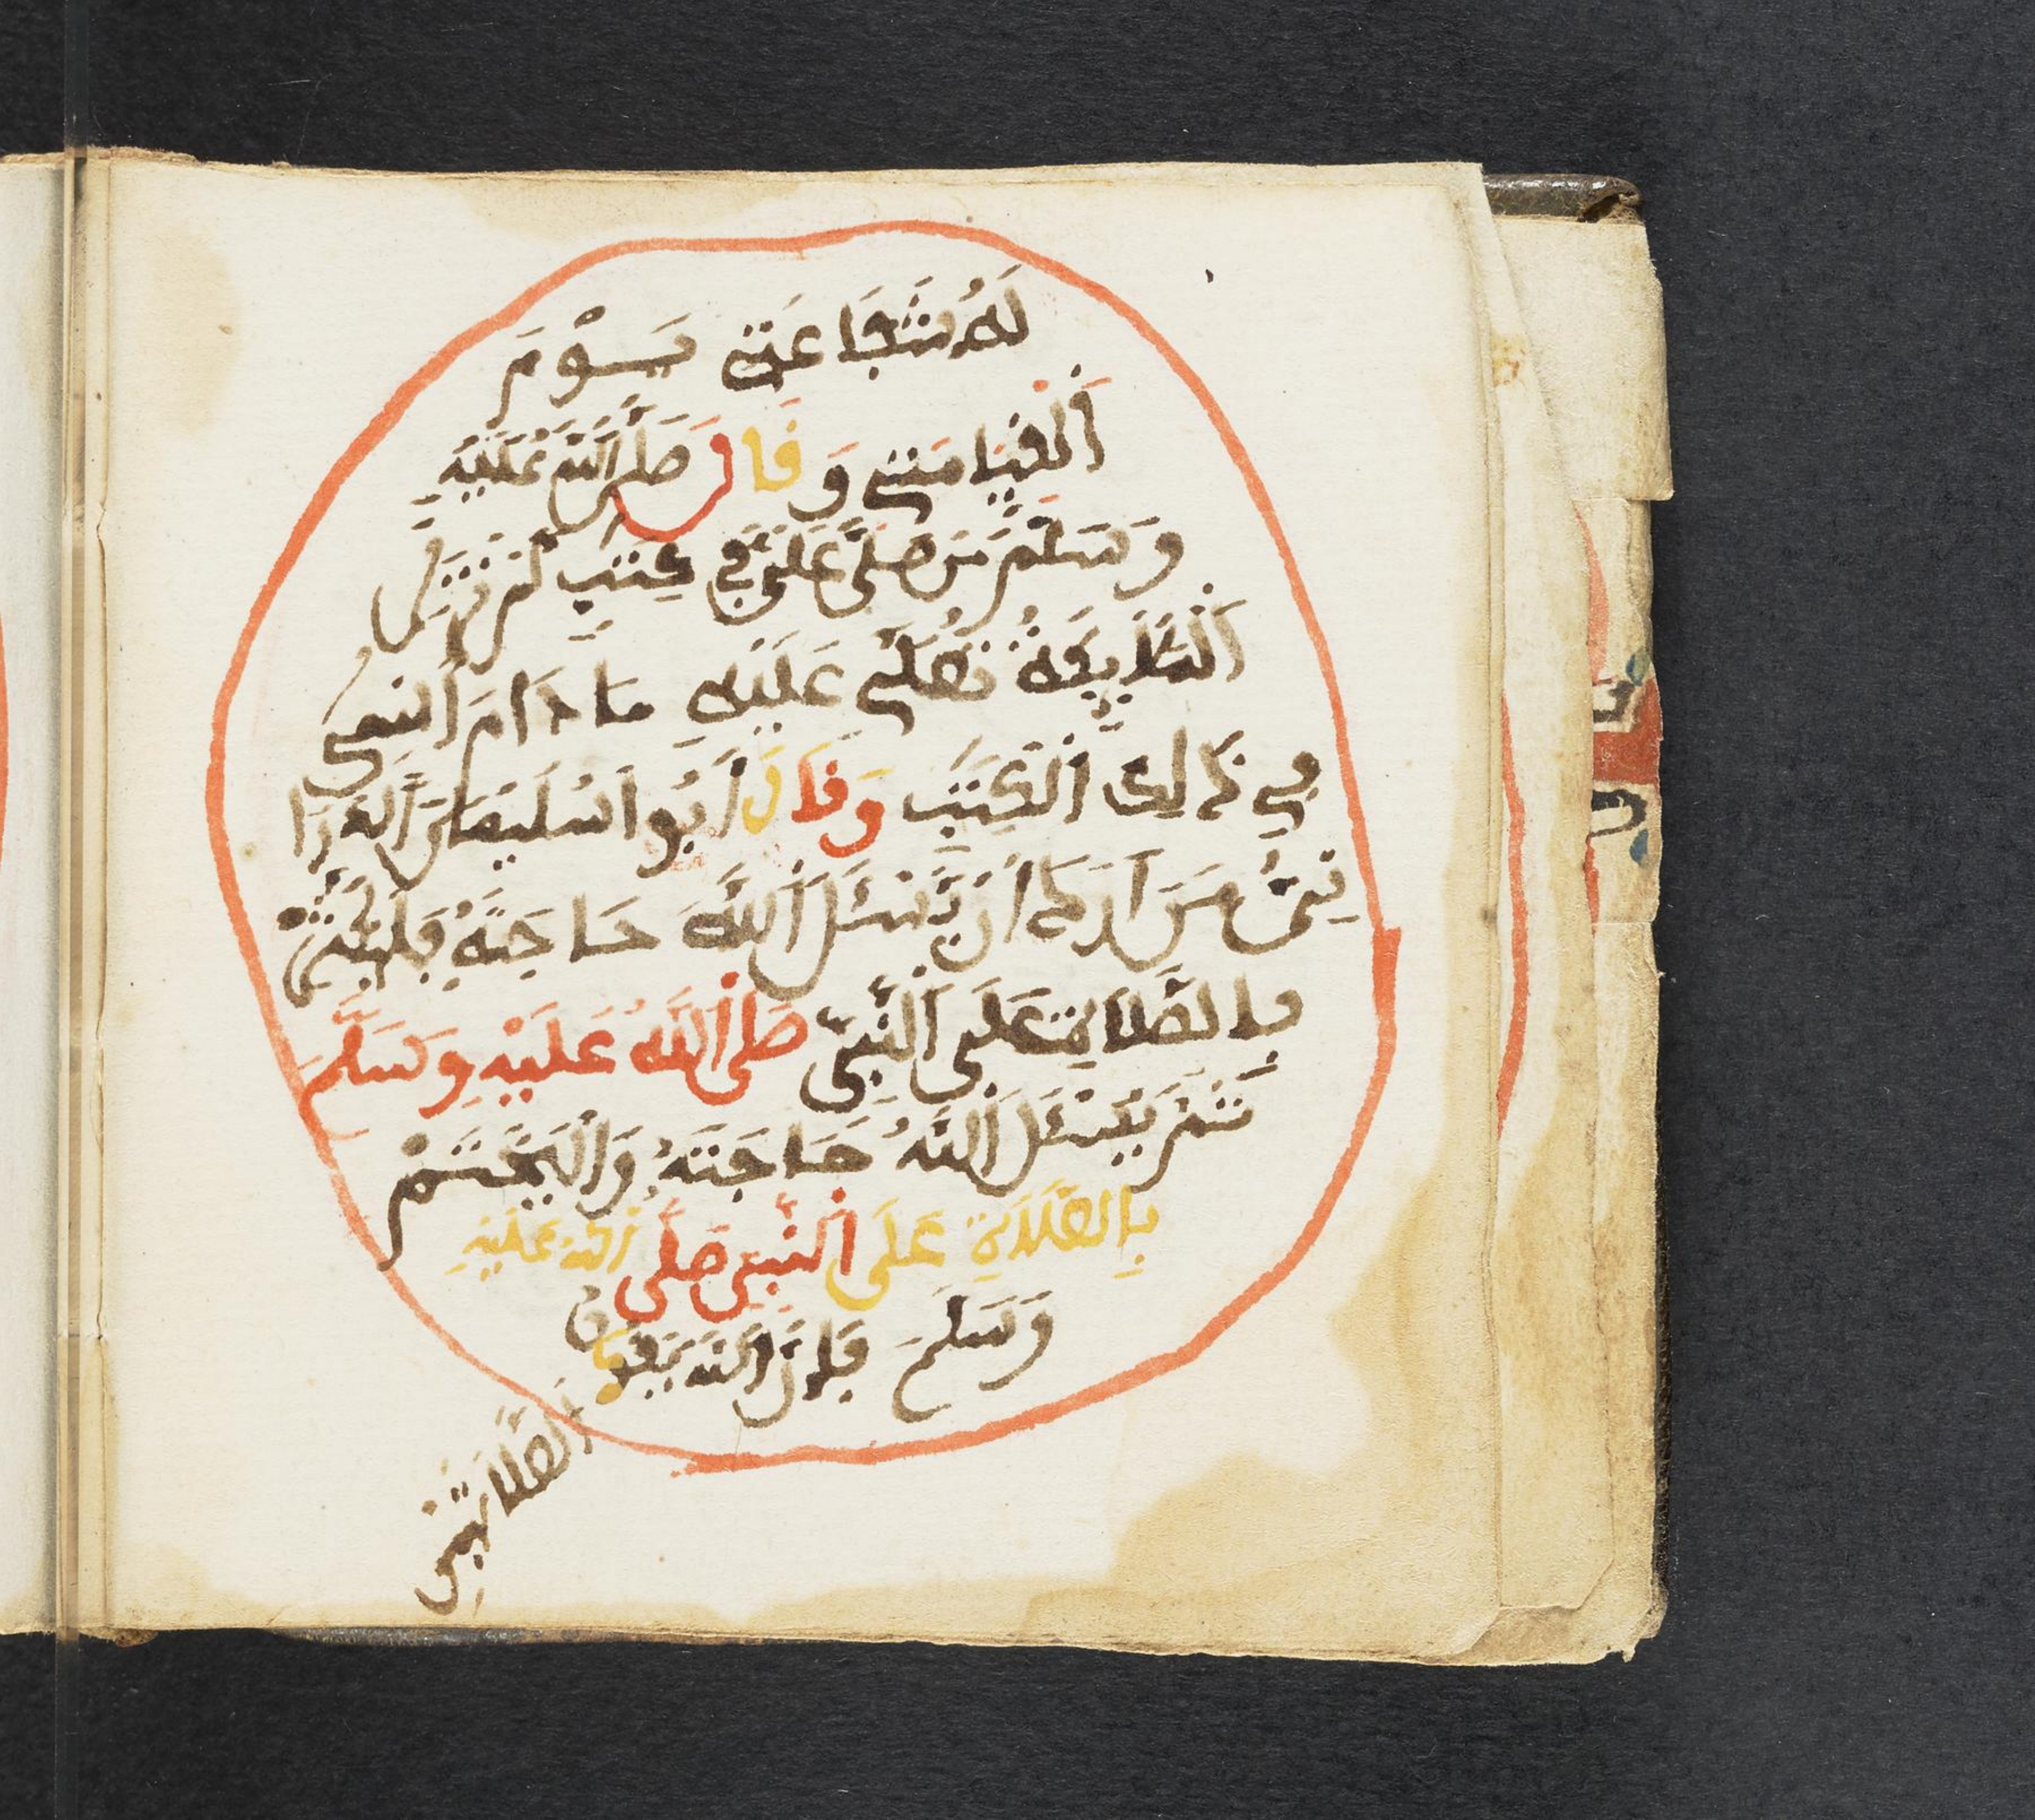 لَهُ شَفَاعَتِي يَوْمَ
اَلْقِيَامَةِ وَقَالَ صَلَّى اللَّهُ عَلَيْهِ
وَسَلَّمَ مَن صَلَّى عَلَيَّ فِي كِتَبٍ لَمْ تَزَلِ
اَلْمَلَٰئِكَةُ تُصَلِّي عَلَيْهِ مَا دَامَ اَسْمِي
فِي ذَالِكَ اَلْكِتَبِ وَقَالَ أَبُوا سُلَيْمَانَ اَلدَّرَا
نِيُّ مَنَ اَرَادَ أَنْ يَّسْئَلَ اَللَّهَ حَاجَةً فَلْيُكْثِرْ
بِالصَّلَاةِ عَلَى اَلنَّبِيِّ صَلَّى اَللَّهُ عَلَيْهِ وَسَلَّمَ
ثُمَّ يَسْئَلُ اَللَّهَ حَاجَتَهُ وَالْيَخْتِمْ
بِالصَّلَاةِ عَلَى اَلنَّبِيِّ صَلَّى اَللَّهُ عَلَيْهِ
وَسَلَّمَ فَإِنَّ اَللَّهَ يَقْبَلُ
اَلصَّلَاتَيْنِ